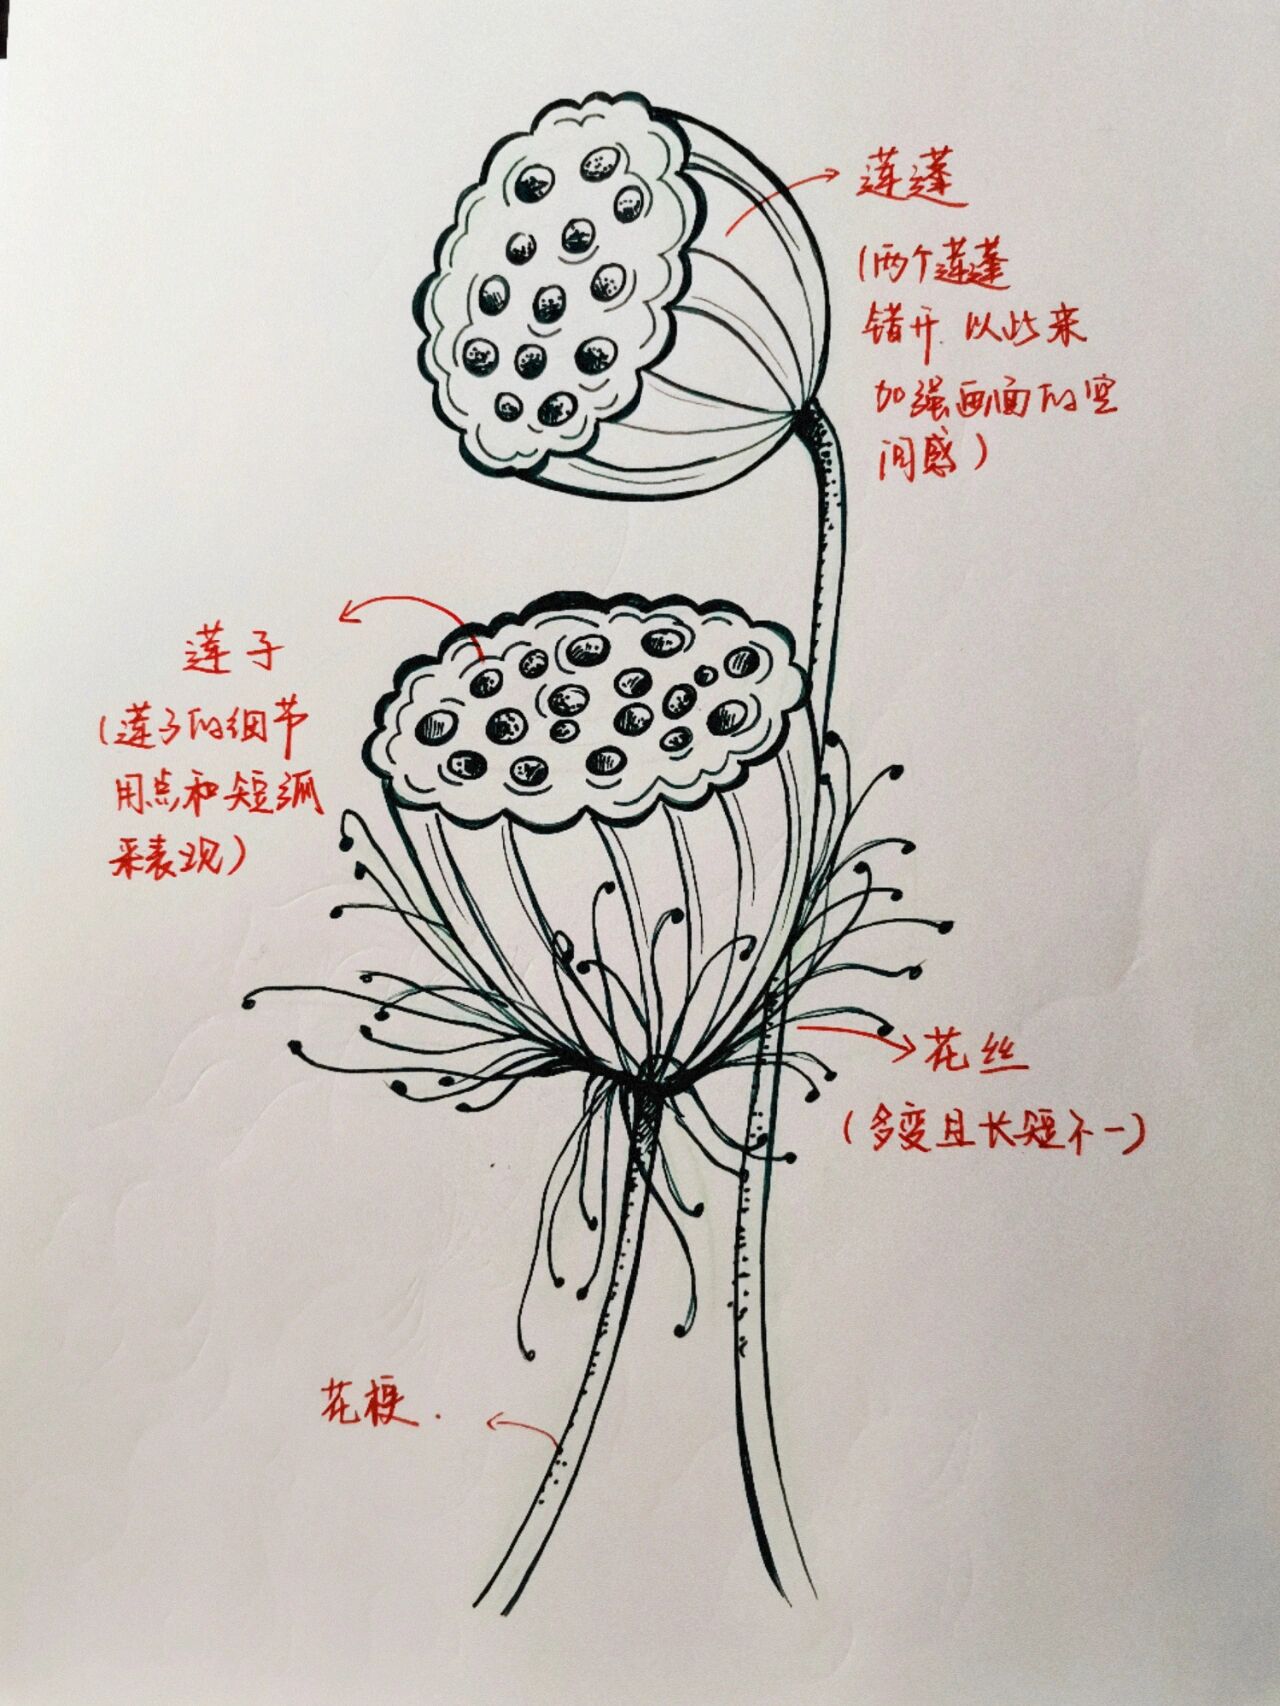 莲蓬
(两个莲蓬
错开 以此来
加强画面的空
间感)
莲子
(莲子的细节
用点和短弧
来表现)
花丝
(多变且长短不一)
花梗.